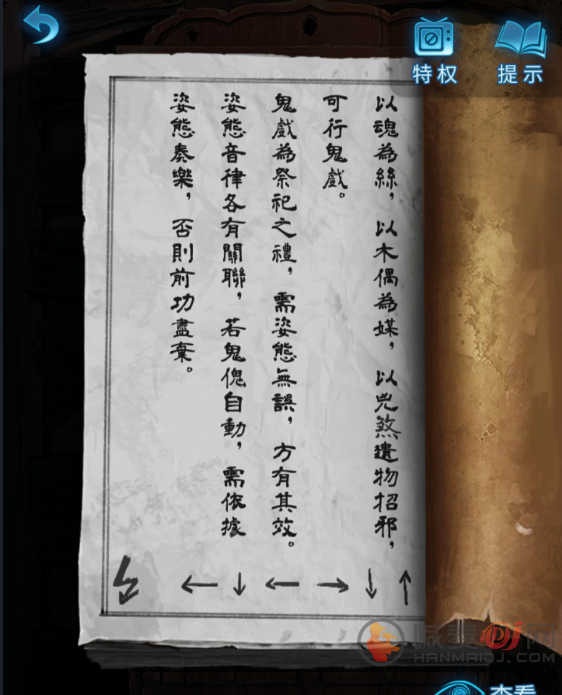 特权
提示
以魂為絲，以木偶為媒，以兇煞遺物招邪，
可行鬼戲。
鬼戲為祭祀之禮，需姿態無誤，方有其效。
姿態音律各有關聯，若鬼傀自動，需依據
姿態奏樂，否則前功盡棄。
↑↓→←↓←
HANMAIDJ.COM
查看